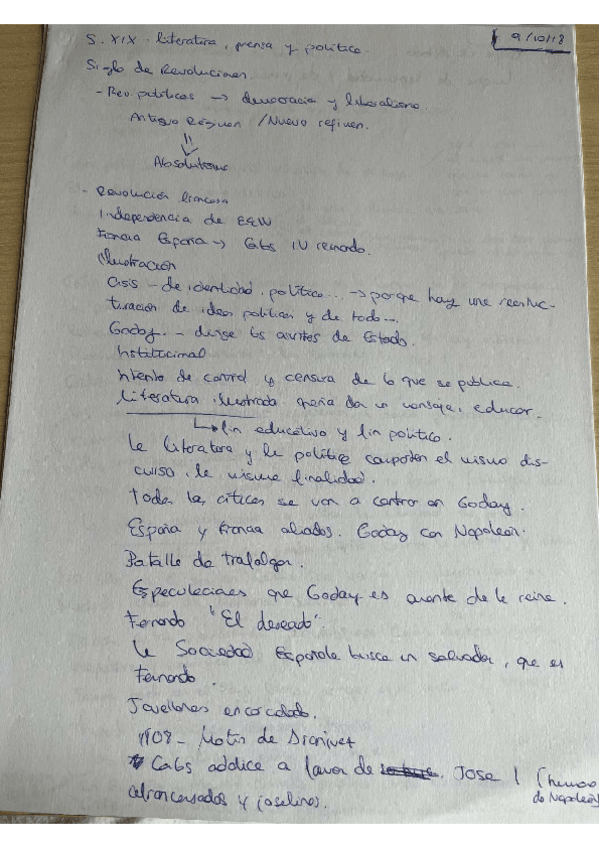 S. XIX. literatura, prensa y política.
9/10/18
Siglo de Revoluciones.
- Rev. políticas → democracia y liberalismo.
Antiguo Régimen / Nuevo régimen.
Absolutismo
- Revolución francesa
Independencia de EEUU
Francia España → Carlos IV reinando.
Ilustración
Crisis - de identidad, política... → porque hay una reestruc-
turación de ideas políticas y de todo...
Godoy. - dirige los asuntos de Estado.
Institucional
Intento de control y censura de lo que se publica.
Literatura ilustrada quería dar un mensaje, educar.
↳ fin educativo y fin político.
La literatura y la política comparten el mismo dis-
curso, la misma finalidad.
Todas las críticas se van a centrar en Godoy.
España y Francia aliados. Godoy con Napoleón.
Batalla de Trafalgar.
Especulaciones que Godoy es amante de la reina.
Fernando "El deseado".
La Sociedad Española busca un salvador, que es
Fernando.
Jovellanos encarcelado.
1808 - Motín de Aranjuez
Carlos abdica a favor de José I (hermano
de Napoleón)
afrancesados y